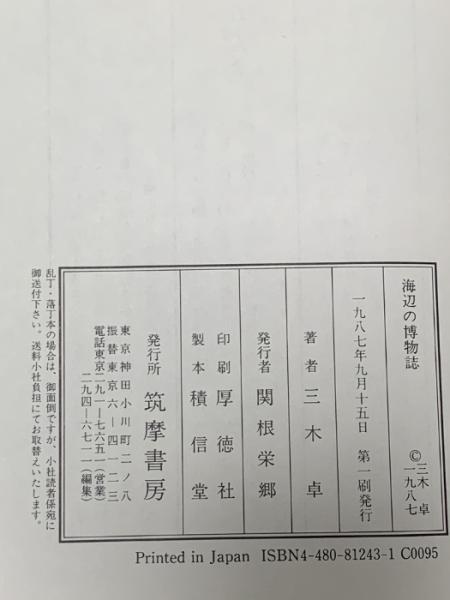 海辺の博物誌
©三木 卓
一九八七
一九八七年九月十五日 第一刷発行
著者 三木 卓
発行者 関根栄郷
印刷 厚徳社
製本 積信堂
発行所 筑摩書房
東京神田小川町二ノ八
振替東京六―四一二三
電話東京二九一―七六五一(営業)
二九四―六七一一(編集)
乱丁・落丁本の場合は、御面倒ですが、小社読者係宛に
御送付下さい。送料小社負担にてお取替えいたします。
Printed in Japan ISBN4-480-81243-1 C0095